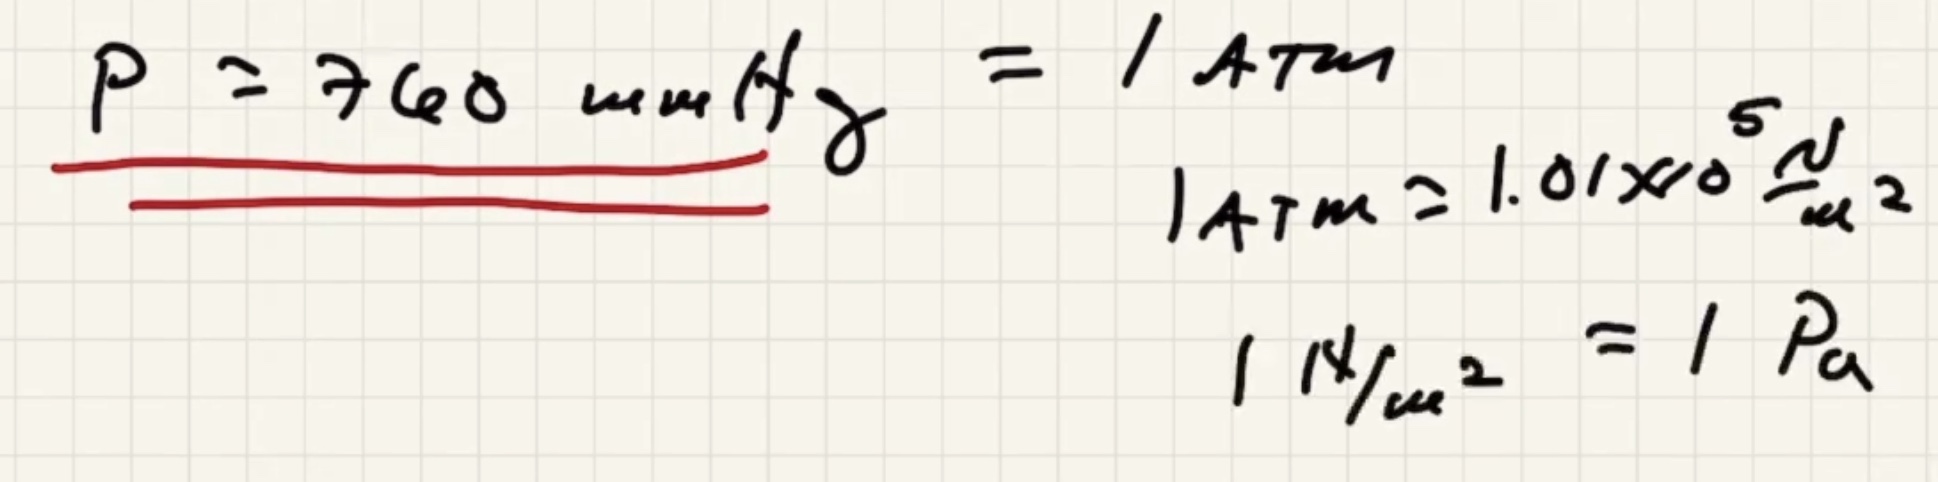 P = 760 mmHg = 1 ATM
1 ATM = 1.01x10⁵ N/m²
1 N/m² = 1 Pa